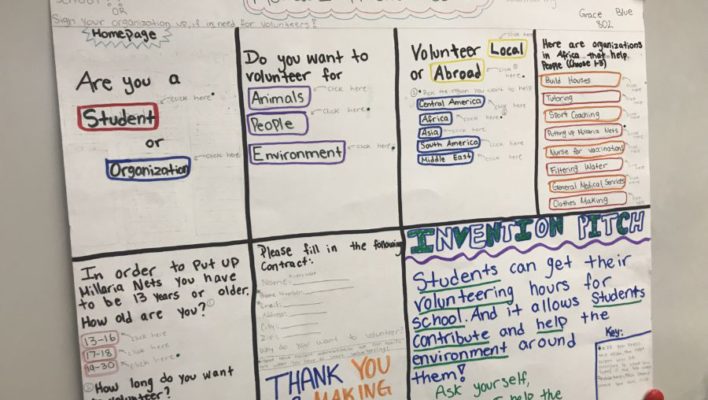 OR
Sign your organization up, if in need for volunteers!
Grace Blue
802
Homepage
Are you a
Student
click here
or
Organization
click here
Do you want to
volunteer for
Animals
click here
People
click here
Environment
click here
Volunteer Local
or Abroad
click here
Pick the region you want to help
Central America
click here
Africa
click here
Asia
click here
South America
click here
Middle East
click here
Here are organizations
in Africa that help
People (Choose 1-3)
Build Houses
Tutoring
Sport Coaching
Putting up Malaria Nets
Nurse for Vaccinations
Filtering Water
General Medical Services
Clothes Making
In order to put up
Millaria Nets you have
to be 13 years or older.
How old are you?
13-16
click here
17-18
click here
19-30
click here
How long do you want
to volunteer?
Please fill in the following
Contract:
Name:
Email:
Address:
City:
Why do you want to volunteer?
THANK YOU
MAKING
INVENTION PITCH
Students can get their
volunteering hours for
school. And it allows Students
contribute and help the
environment around
them!
Ask yourself,
help the
Key: